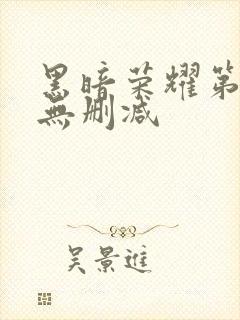 黑暗荣耀第
無删减
吴景進